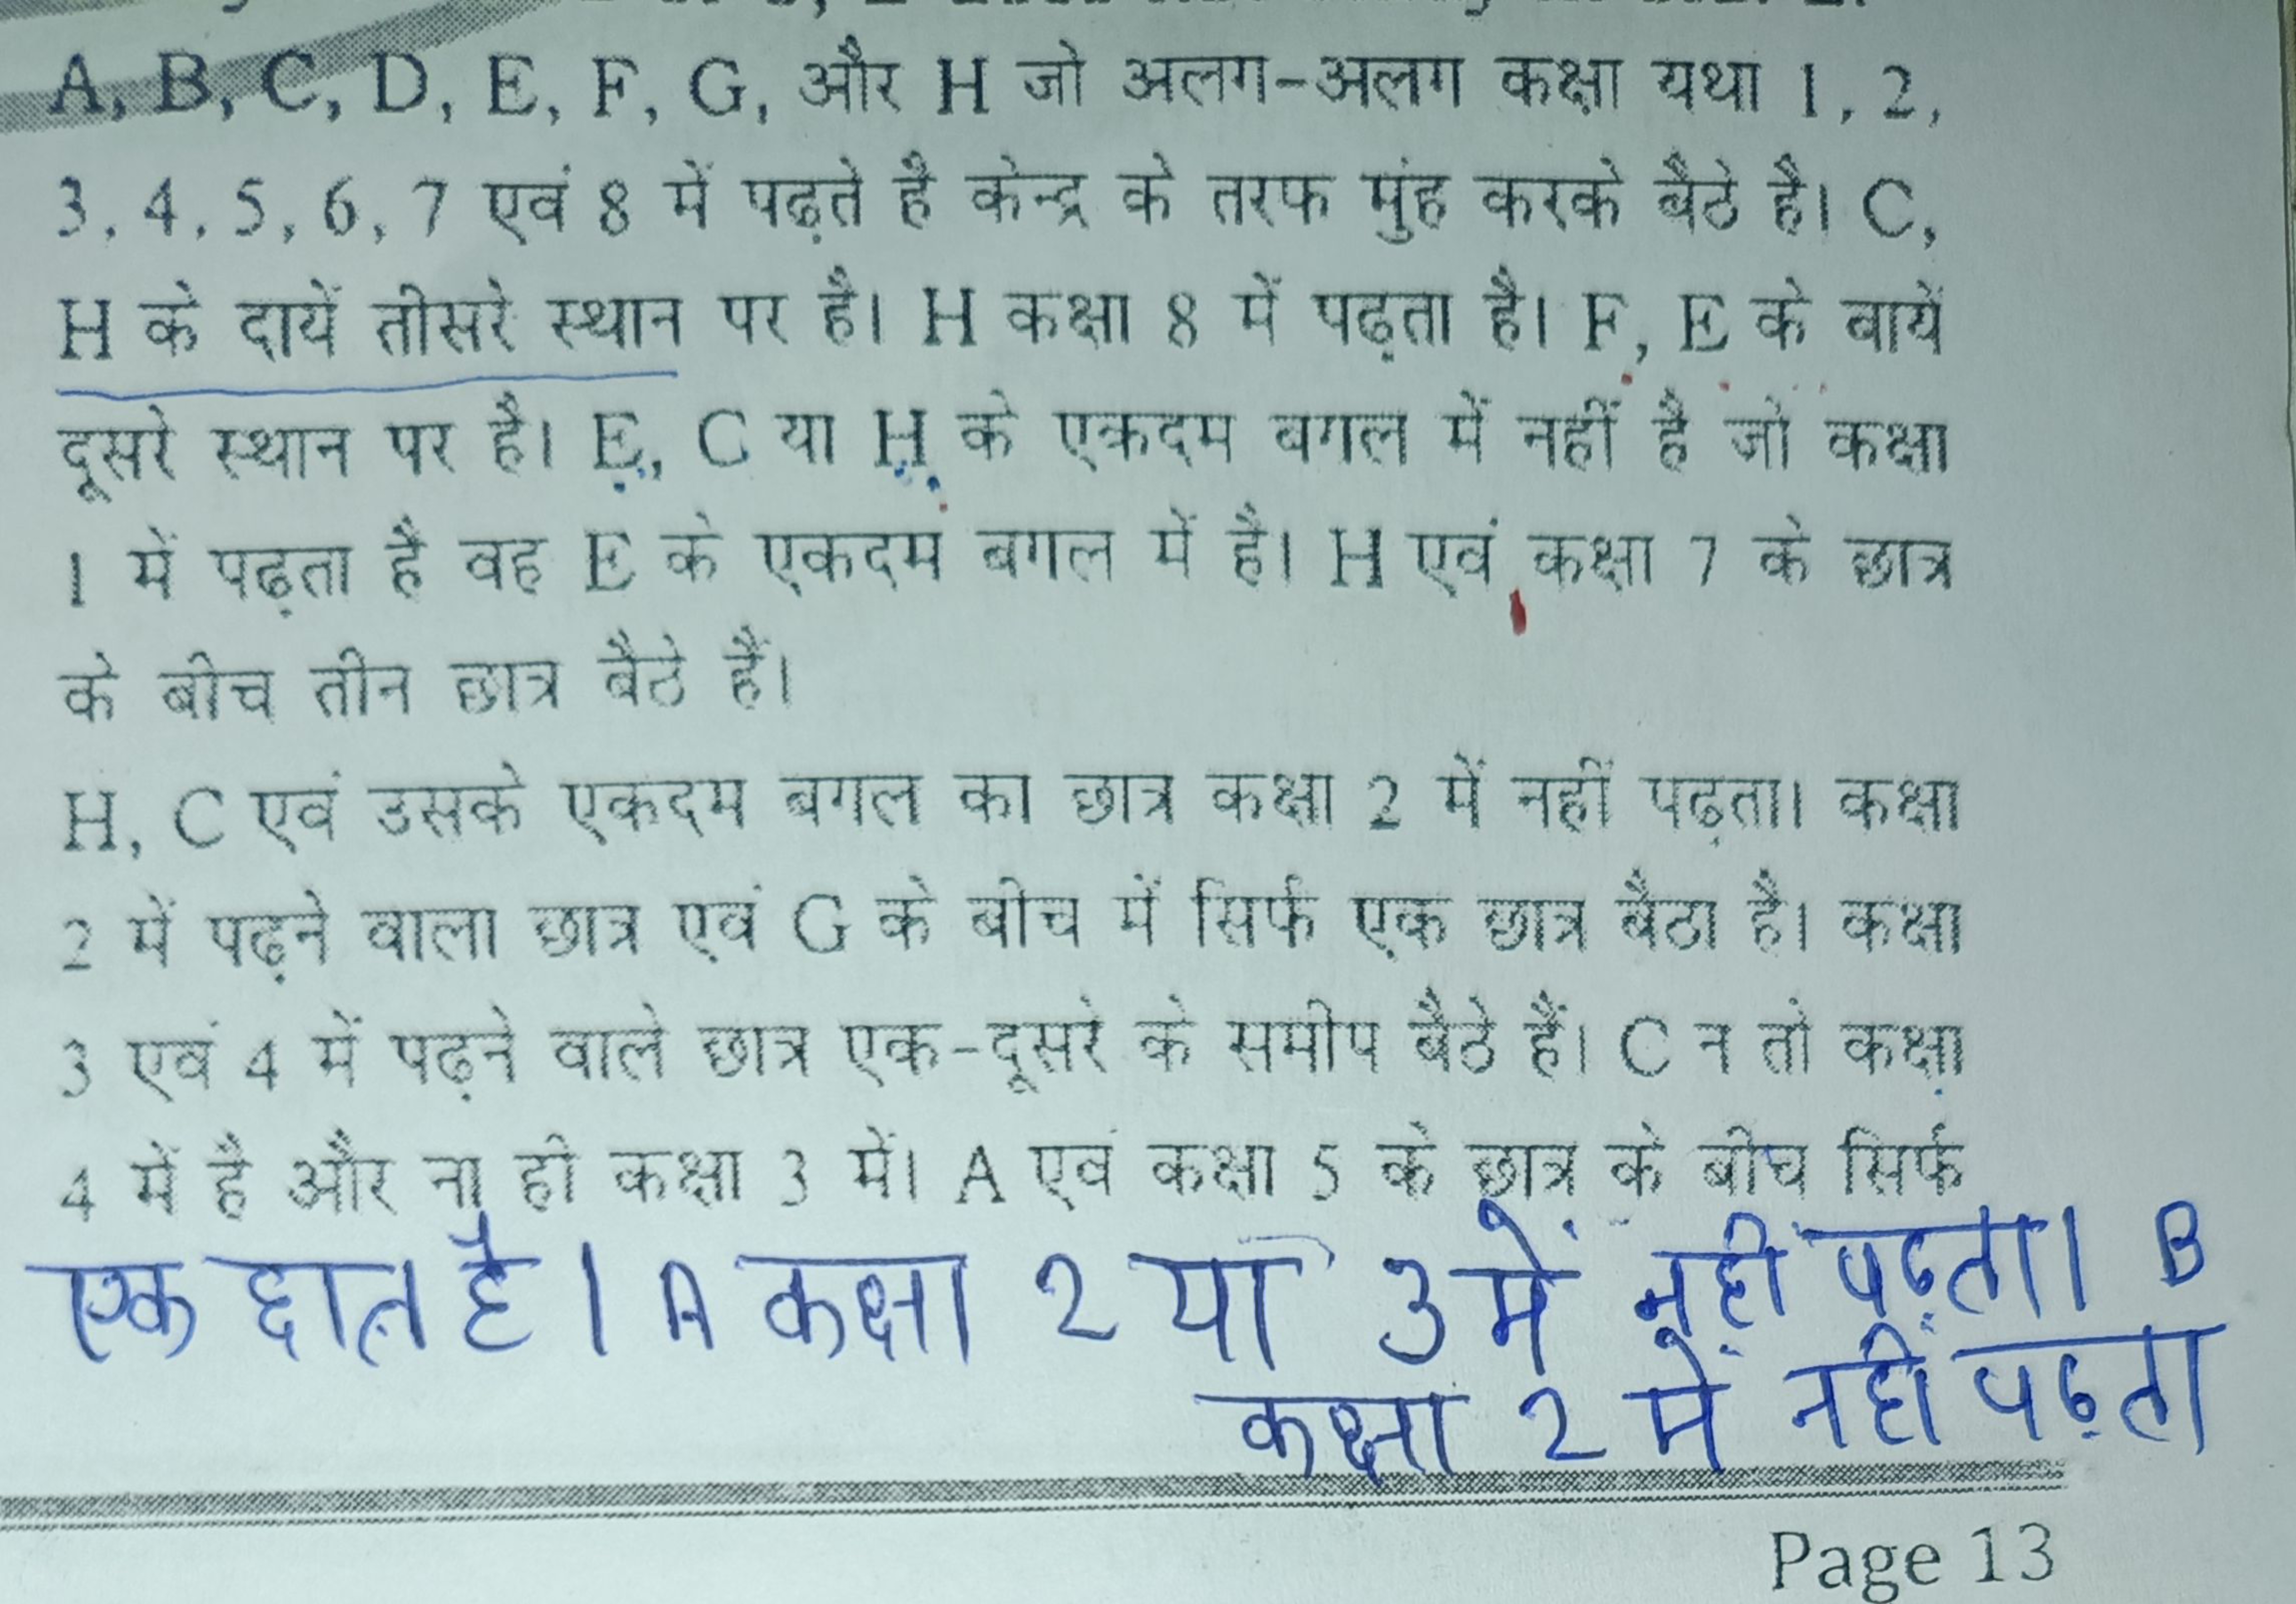 A, B, C, D, E, F, G, और H जो अलग-अलग कक्षा यथा 1, 2,
3, 4, 5, 6, 7 एवं 8 में पढ़ते है केन्द्र के तरफ मुंह करके बैठे है। C,
H के दायें तीसरे स्थान पर है। H कक्षा 8 में पढ़ता है। F, E के बायें
दूसरे स्थान पर है। E, C या H के एकदम बगल में नहीं है जो कक्षा
1 में पढ़ता है वह E के एकदम बगल में है। H एवं कक्षा 7 के छात्र
के बीच तीन छात्र बैठे हैं।
H, C एवं उसके एकदम बगल का छात्र कक्षा 2 में नहीं पढ़ता। कक्षा
2 में पढ़ने वाला छात्र एवं G के बीच में सिर्फ एक छात्र बैठा है। कक्षा
3 एवं 4 में पढ़ने वाले छात्र एक-दूसरे के समीप बैठे हैं। C न तो कक्षा
4 में है और ना ही कक्षा 3 में। A एवं कक्षा 5 के छात्र के बीच सिर्फ
एक छात्र है। A कक्षा 2 या 3 में नहीं पढ़ता। B
कक्षा 2 में नहीं पढ़ता
Page 13